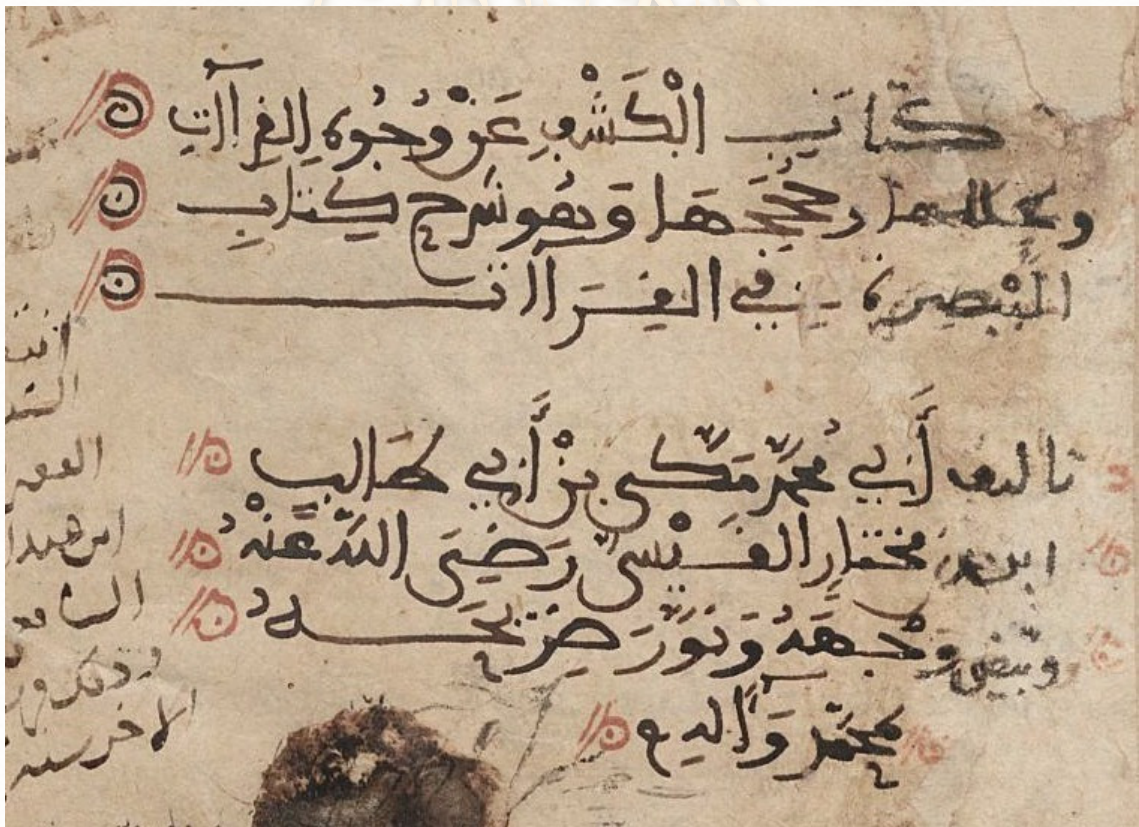 كتاب الْكَشْفِ عَنْ وُجُوهِ القِرآاتِ
وعللها وحُجَجِهَا وَهُو شرح كِتابِ
التَّبْصِرة فِي القِرَاات
تاليف أَبي مُحمّد مَكّي بنْ أَبي طَالبٍ
ابن مختار القَيْسيّ رَضِيَ اللهُ عَنْهُ
وبَيَّض وَجْهَهُ وَنوّرَ ضَرِيحَهُ
بمحَمّد وَآله
الفقير
الاخر سنة